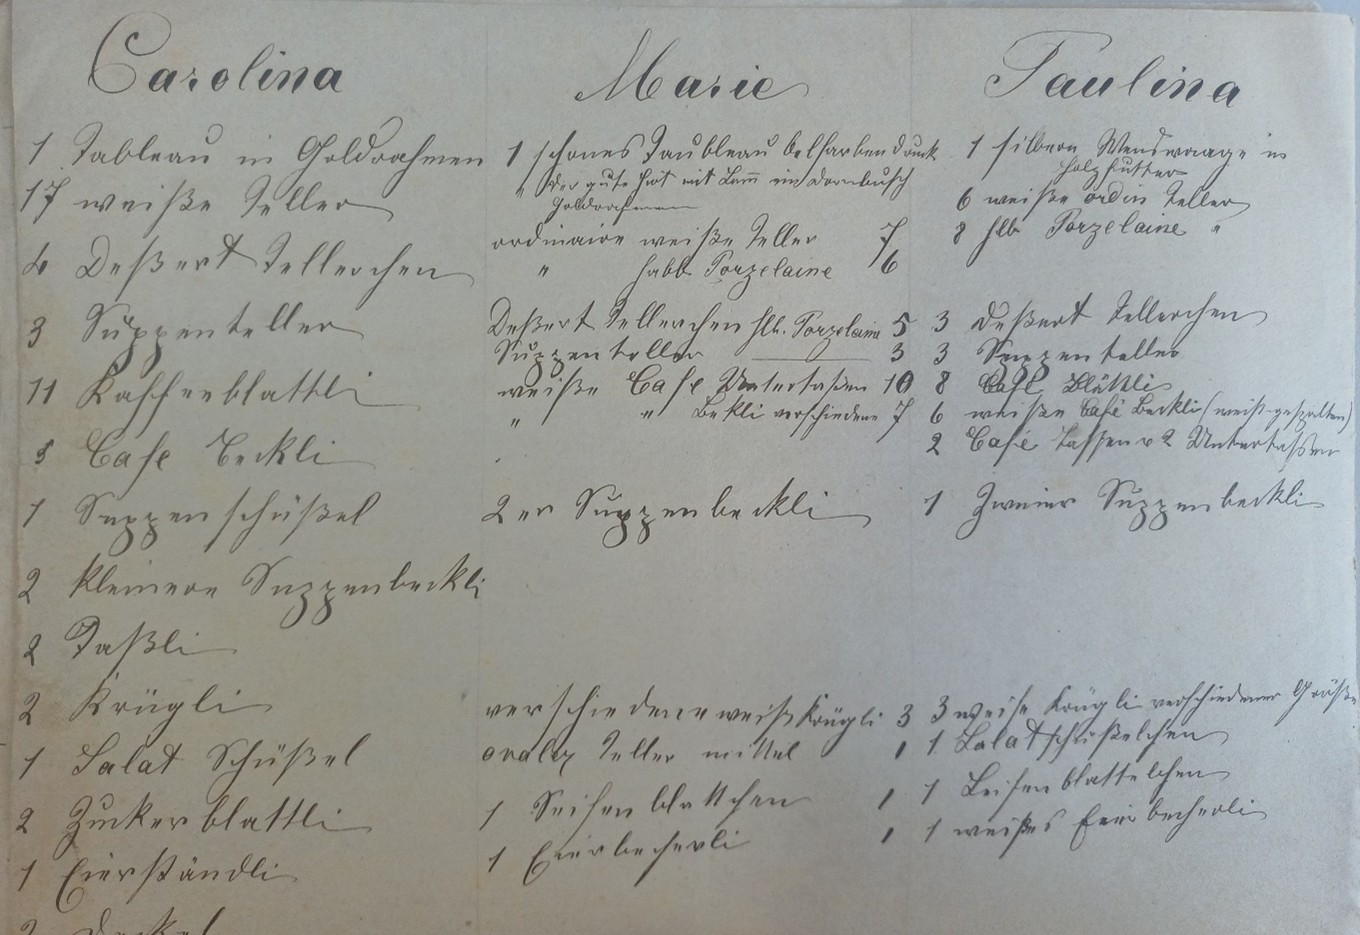 Carolina
1 Tableau in Goldrahmen
17 weiße Teller
4 Deßert Tellerchen
3 Suppenteller
11 Kaffeeblattli
5 Cafe Beckli
1 Suppenschüßel
2 kleinere Suppenbeckli
2 Taßli
2 Krügli
1 Salat Schüßel
2 Zuckerblattli
1 Eierständli
2 Deckel
Marie
1 schönes Taubleau oelfarbendruck
" der gute Hirt mit Lam̄ im Dornbusch
Goldrahmen
ordinaire weiße Teller 7
" halb Porzelaine 6
Deßert Tellerchen hlb. Porzelain 5
Suppenteller 3
weiße Cafe Untertaßen 10
" " Bekli verschiedene 7
2er Suppenbeckli
verschiedene weiß Krügli 3
ovaler Teller mittel 1
1 Seifenblattchen 1
1 Eierbecherli 1
Paulina
1 silbern Wendwaage in
Holzfutter
6 weiße ordin Teller
8 hlb Porzelaine "
3 Deßert Tellerchen
3 Suppenteller
8 Café Blättli
6 weiße Café Beckli (weiß-gespalten)
2 Café Tassen & 2 Untertaßen
1 Zweier Suppenbeckli
3 weiße Krügli verschiedener Größe
1 Salatschüßelchen
1 Seifenblattelchen
1 weißes Eierbecherli